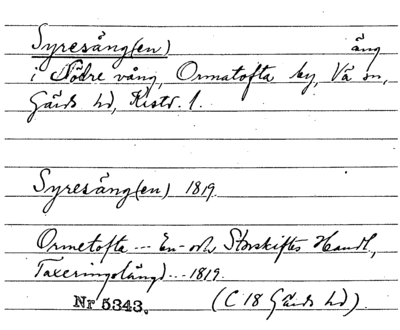 Syresäng(en) äng
i Södre vång, Ormatofta by, Vä sn,
Gärds hd, Kristr. l.
Syresäng(en) 1819.
Ormetofta --- En- och Storskiftes Handl,
Taxeringslängd --- 1819.
Nr 5343. (C 18 Gärds hd).